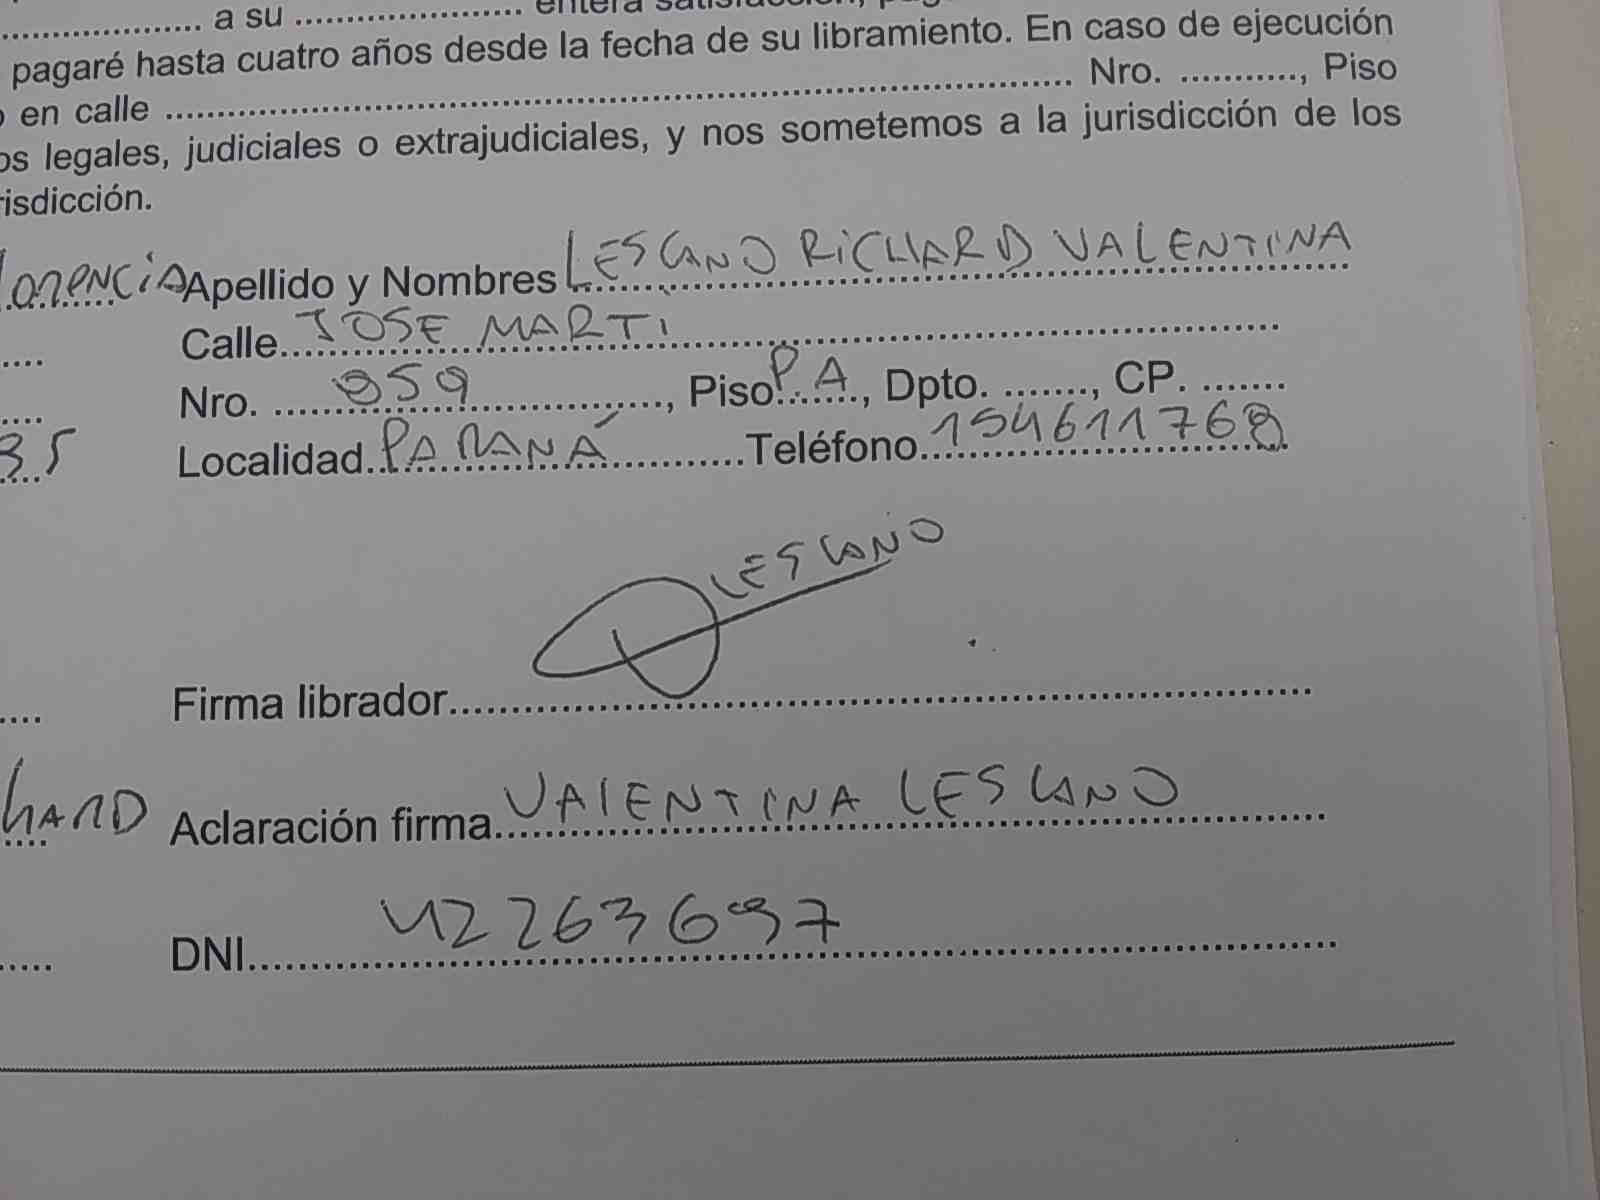 .................... a su ....................... entera
pagaré hasta cuatro años desde la fecha de su libramiento. En caso de ejecución
en calle .................... Nro. ..........., Piso
legales, judiciales o extrajudiciales, y nos sometemos a la jurisdicción de los
risdicción.
Apellido y Nombres LESCANO RICHARD VALENTINA
Calle JOSE MARTI
Nro. 859, Piso P.A, Dpto. ......., CP. .......
35 Localidad PARANÁ Teléfono 154611768
LESCANO
Firma librador
hARD Aclaración firma VALENTINA LESCANO
DNI 42263697